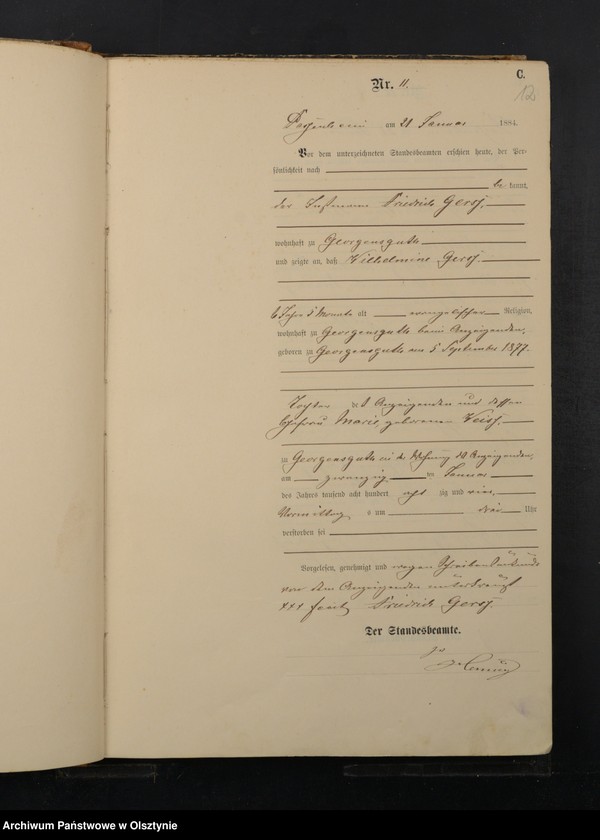 C.
12
Nr. 11.
am 21 Januar 1884.
Vor dem unterzeichneten Standesbeamten erschien heute, der Per-
sönlichkeit nach
be kannt,
der Instmann Friedrich Gerß,
wohnhaft zu Georgensguth
und zeigte an, daß Wilhelmine Gerß,
6 Jahre 5 Monate alt evangelischer Religion,
wohnhaft zu Georgensguth beim Anzeigenden,
geboren zu Georgensguth am 5 September 1877.
Tochter des Anzeigenden und dessen
Ehefrau Marie, geborenen
zu Georgensguth in der Wohnung des Anzeigenden,
am zwanzigsten Januar
des Jahres tausend acht hundert acht zig und vier,
Vormittags um drei Uhr
verstorben sei
Vorgelesen, genehmigt und wegen Schreibensunkunde
von dem Anzeigenden unterkreuzt
+++ Friedrich Gerß.
Der Standesbeamte.
Archiwum Państwowe w Olsztynie